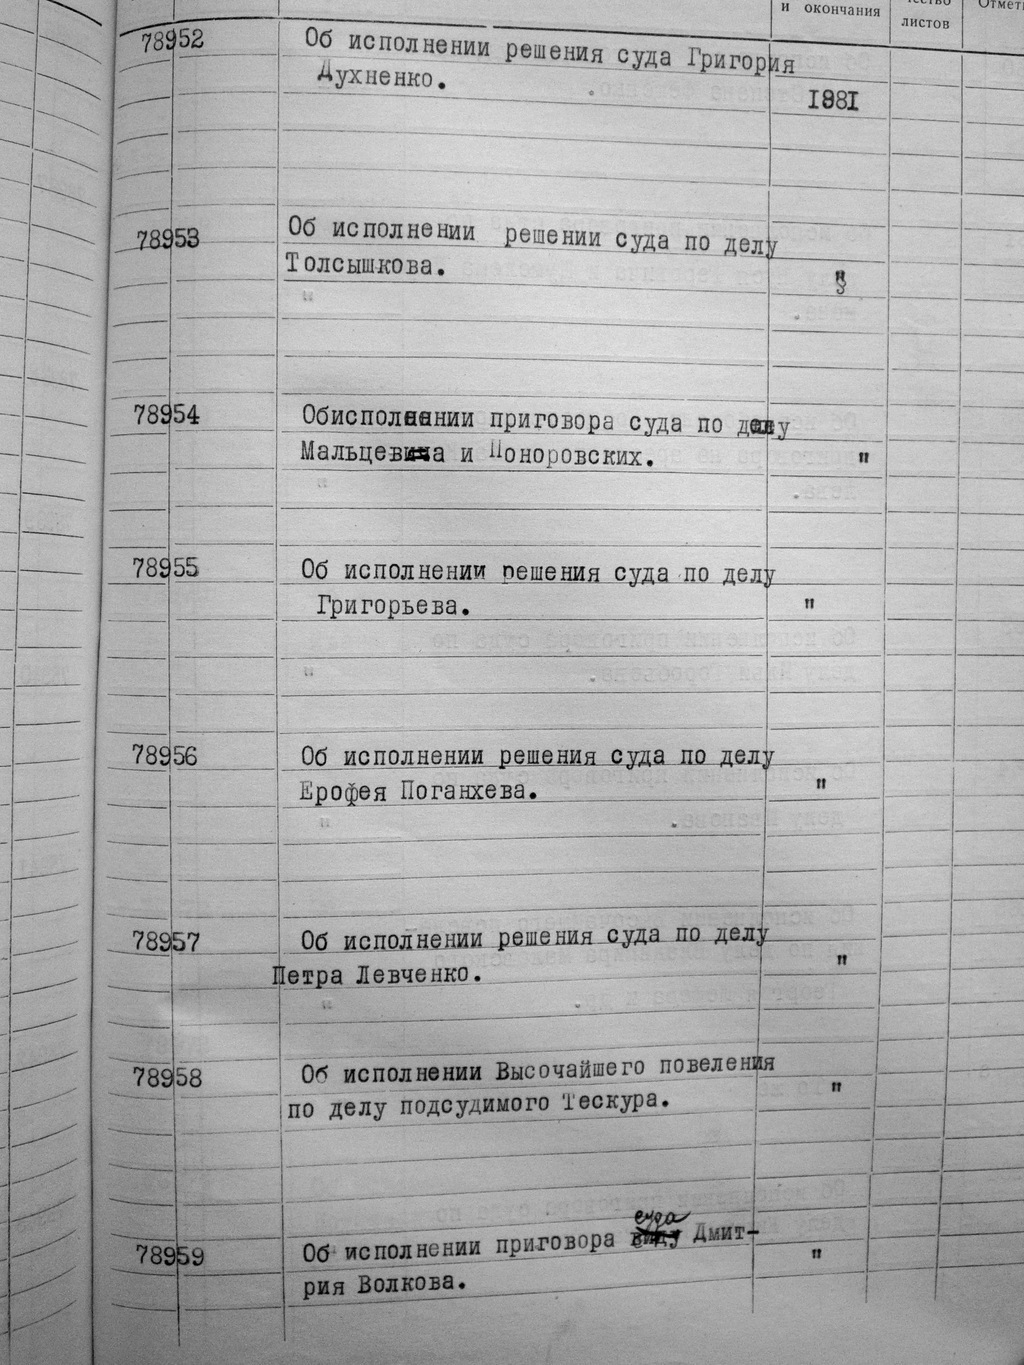 и окончания
листов
78952 Об исполнении решения суда Григория
Духненко.
1981
78953 Об исполнении решении суда по делу
Толсышкова. "
"
78954 Обисполнении приговора суда по делу
Мальцевича и Поноровских. "
"
78955 Об исполнении решения суда по делу
Григорьева. "
"
78956 Об исполнении решения суда по делу
Ерофея Поганхева. "
"
78957 Об исполнении решения суда по делу
Петра Левченко. "
"
78958 Об исполнении Высочайшего повеления
по делу подсудимого Тескура. "
суда
78959 Об исполнении приговора Дмит-
рия Волкова. "